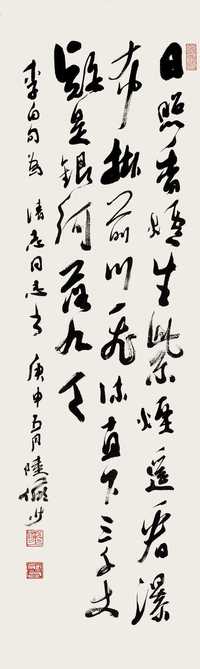 日照香爐生紫煙遥看瀑
布掛前川飛流直下三千丈
疑是銀河落九天
李白句為 同志書 庚申 月 陸儼少